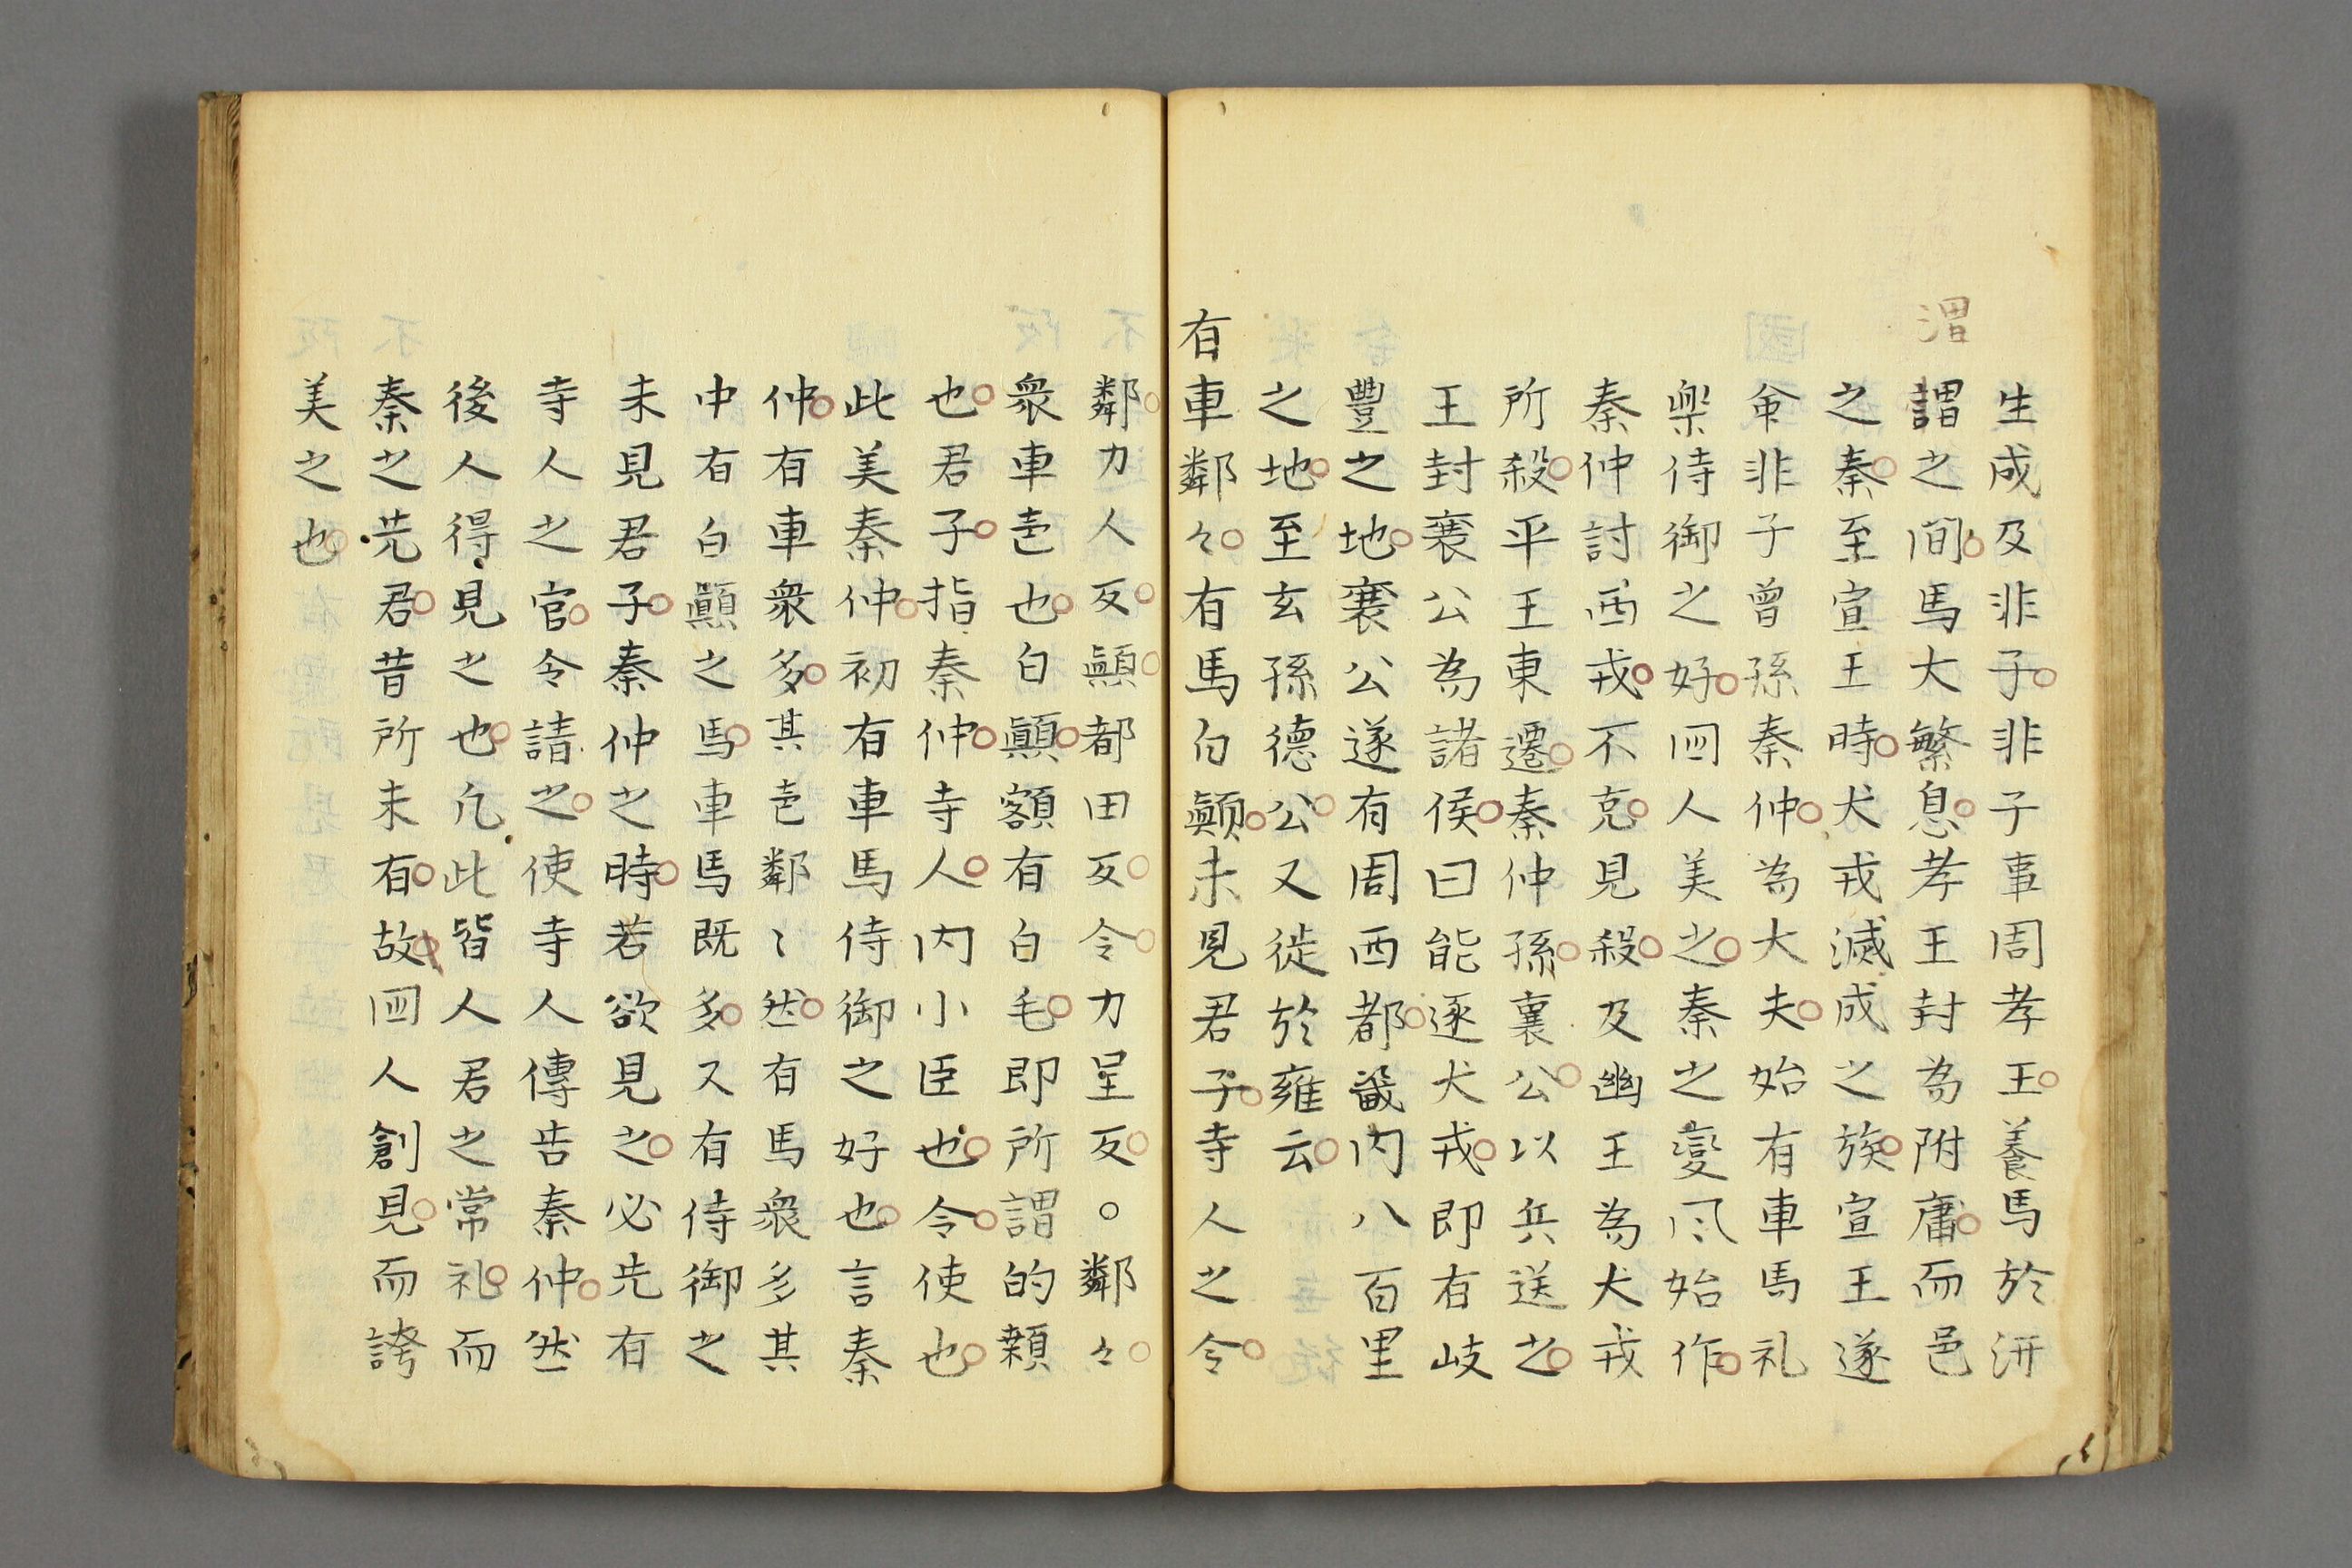 渭
生成及非子非子事周孝王養馬於汧
謂之間馬大繁息孝王封為附庸而邑
之秦至宣王時犬戎滅成之族宣王遂
命非子曾孫秦仲為大夫始有車馬礼
楽侍御之好囯人美之秦之變风始作
秦仲討西戎不克見殺及幽王為犬戎
所殺平王東遷秦仲孫襄公以兵送之
王封襄公為諸侯曰能逐犬戎即有岐
豐之地襄公遂有周西都畿内八百里
之地至玄孫德公又徙於雍云
有車鄰々有馬白顛未見君子寺人之令
鄰力人反顛都田反令力呈反○鄰々
衆車㐵也白顛額有白毛即所謂的顙
也君子指秦仲寺人内小臣也令使也
此美秦仲初有車馬侍御之好也言秦
仲有車衆多其㐵鄰〻然有馬衆多其
中有白顛之馬車馬既多又有侍御之
未見君子秦仲之時若欲見之必先有
寺人之官令請之使寺人傳告秦仲然
後人得見之也凢此皆人君之常礼而
秦之先君昔所未有故囯人創見而誇
美之也